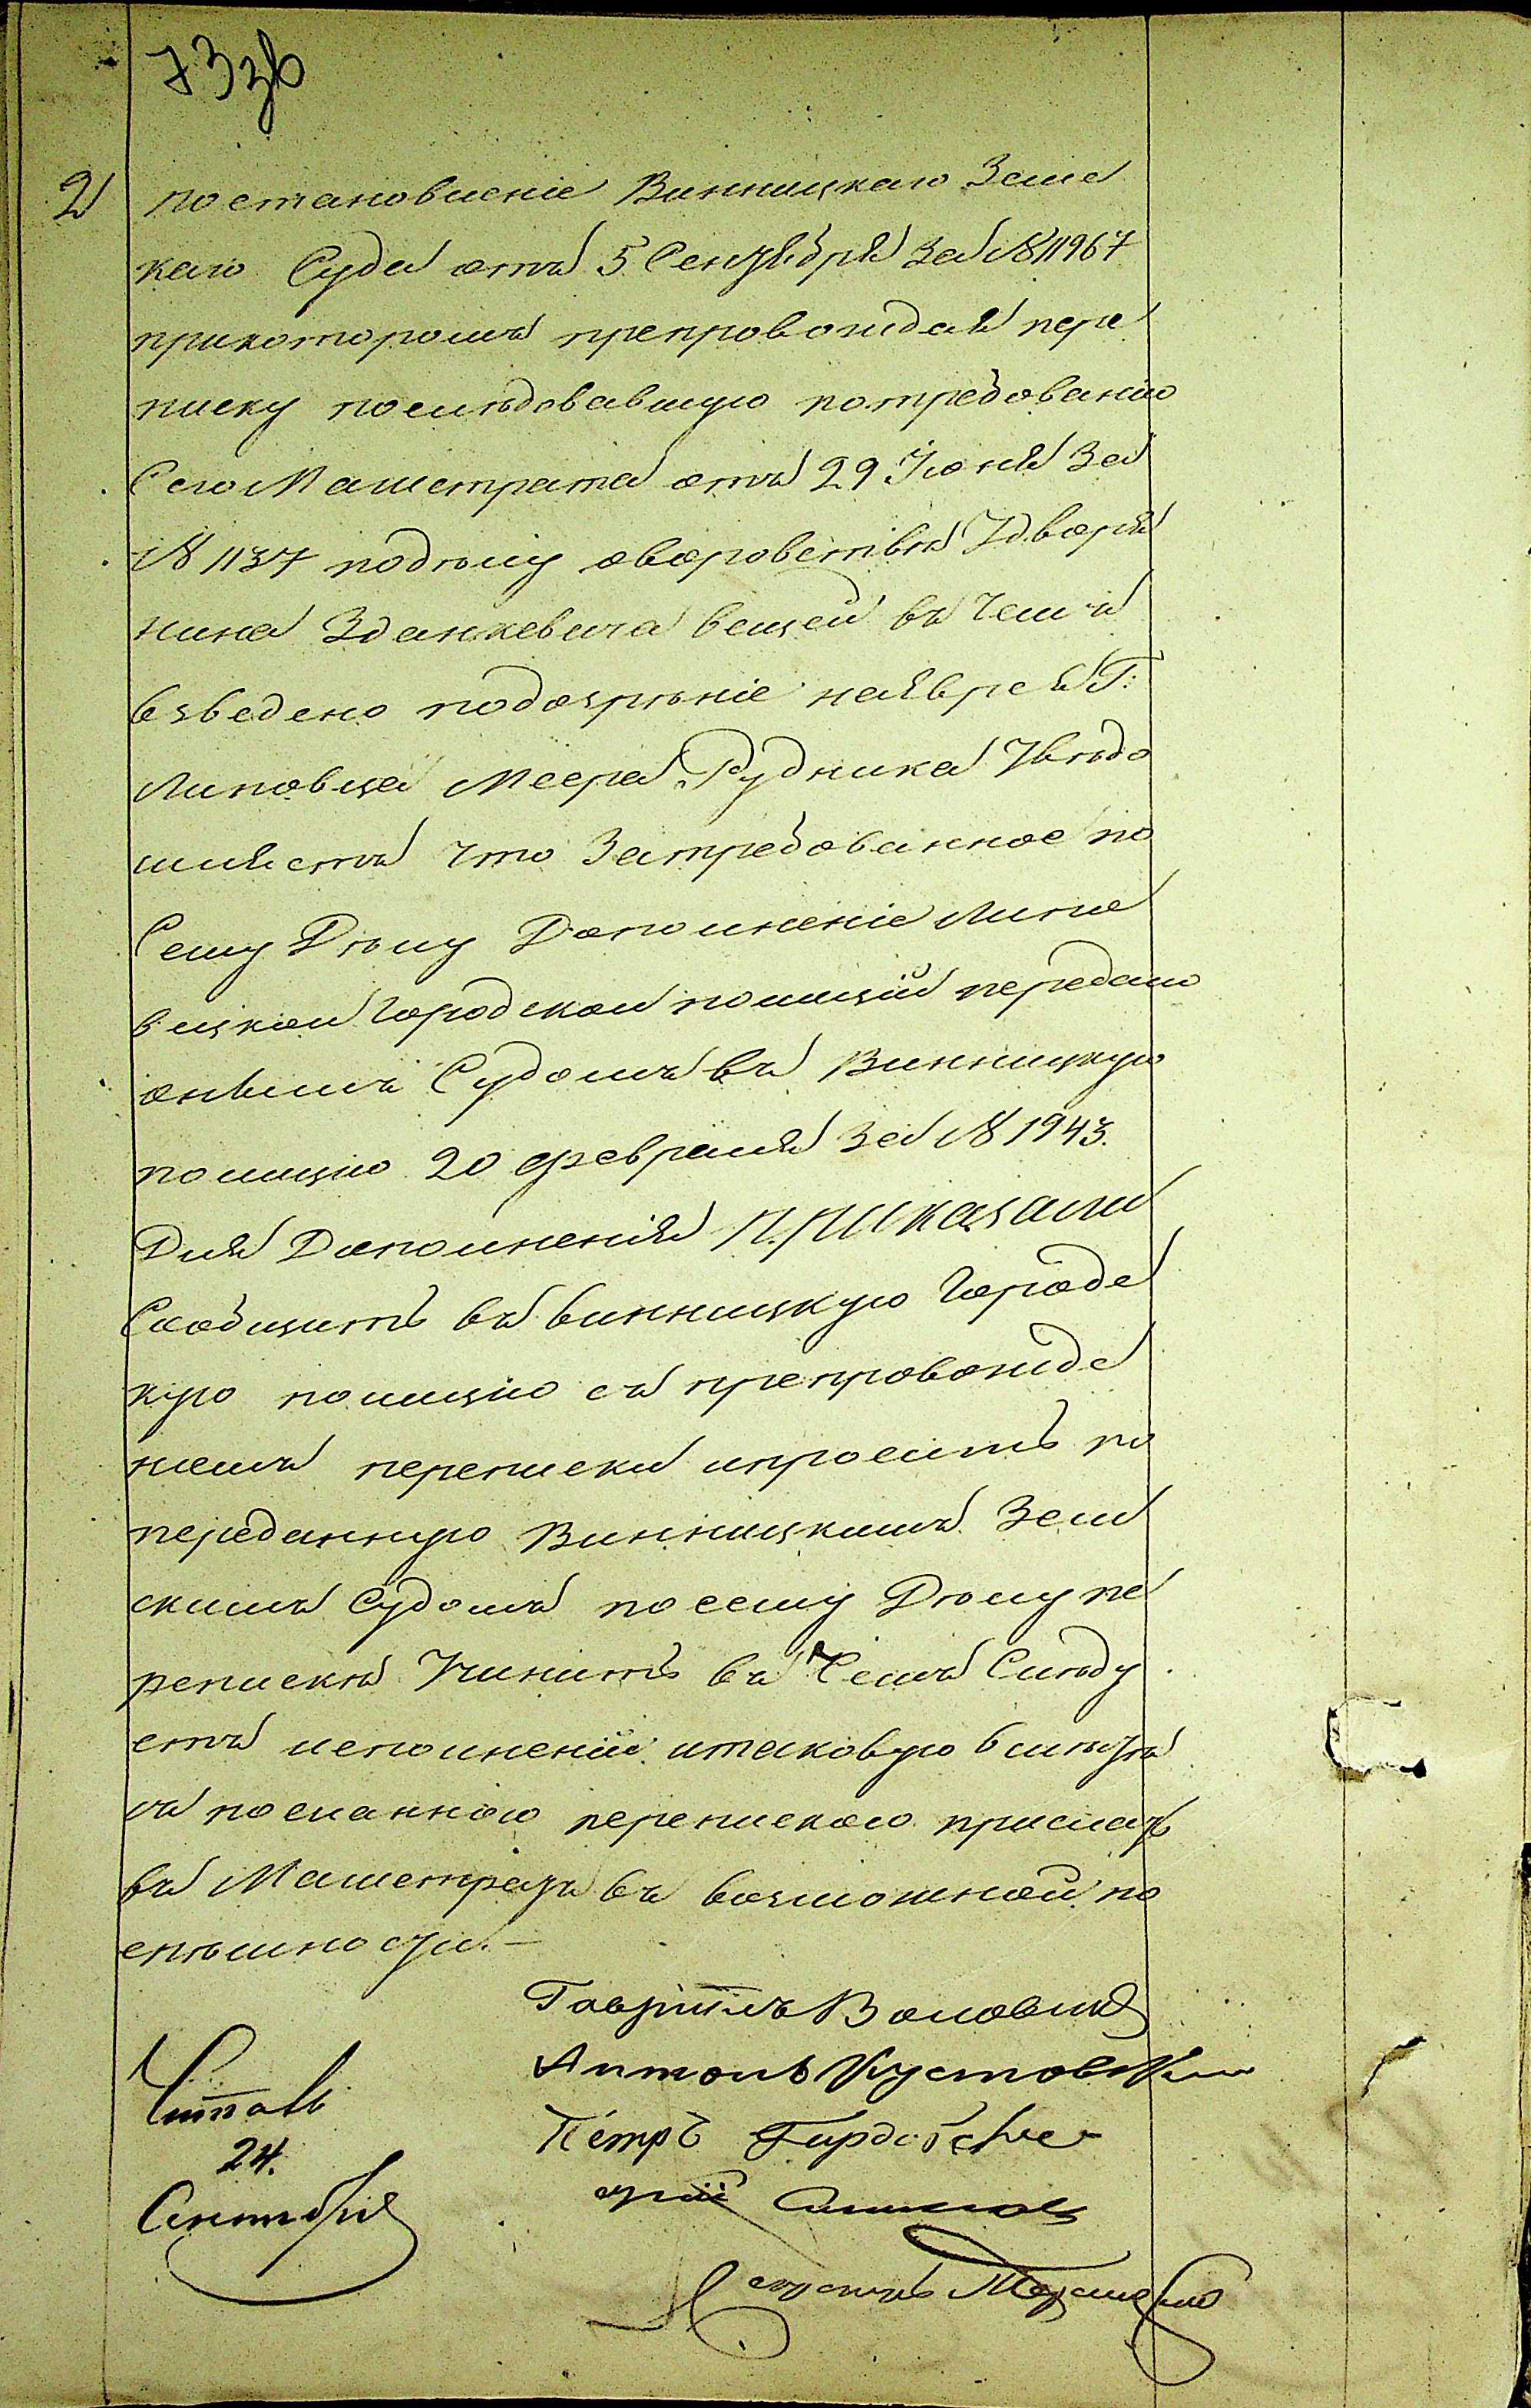 73 зв
2 постановленіе ВинницкагоЗемс
каго Суда отъ 5 Сентября за № 11967
прикоторомъ препровождая пере
писку последовавшую потребованию
Сего Магистрата отъ 29 Іюня за
№ 1137 поделу оворовстве Удворя
нина Зданкевича вещей въ чемъ
взведено подозреніе наевреяГ:
Липовца Меера Рудника Уведо
мляетъ что Затребованное по
Сему Делу Дополненіе Липо
вецкой городской полиціи передано
онымъ Судомъ въ Винницкую
полицию 20 февраля за № 1943.
Для Дополненія П. Приказали
Сообщить въ винницкую Городс
кую полицию съ препровожде
ніемъ переписки ипросить по
переданную Винницкимъ Зем
скимъ Судомъ по сему Делу пе
реписке Учинить въ Чемъ Следу
етъ исполненіи итаковую вместе
съ посланною перепискою прислать
въ Магистратъ въ возможной по
спешности.—
Гавріилъ
Антонъ
Петръ
Читалъ
24.
Сентября